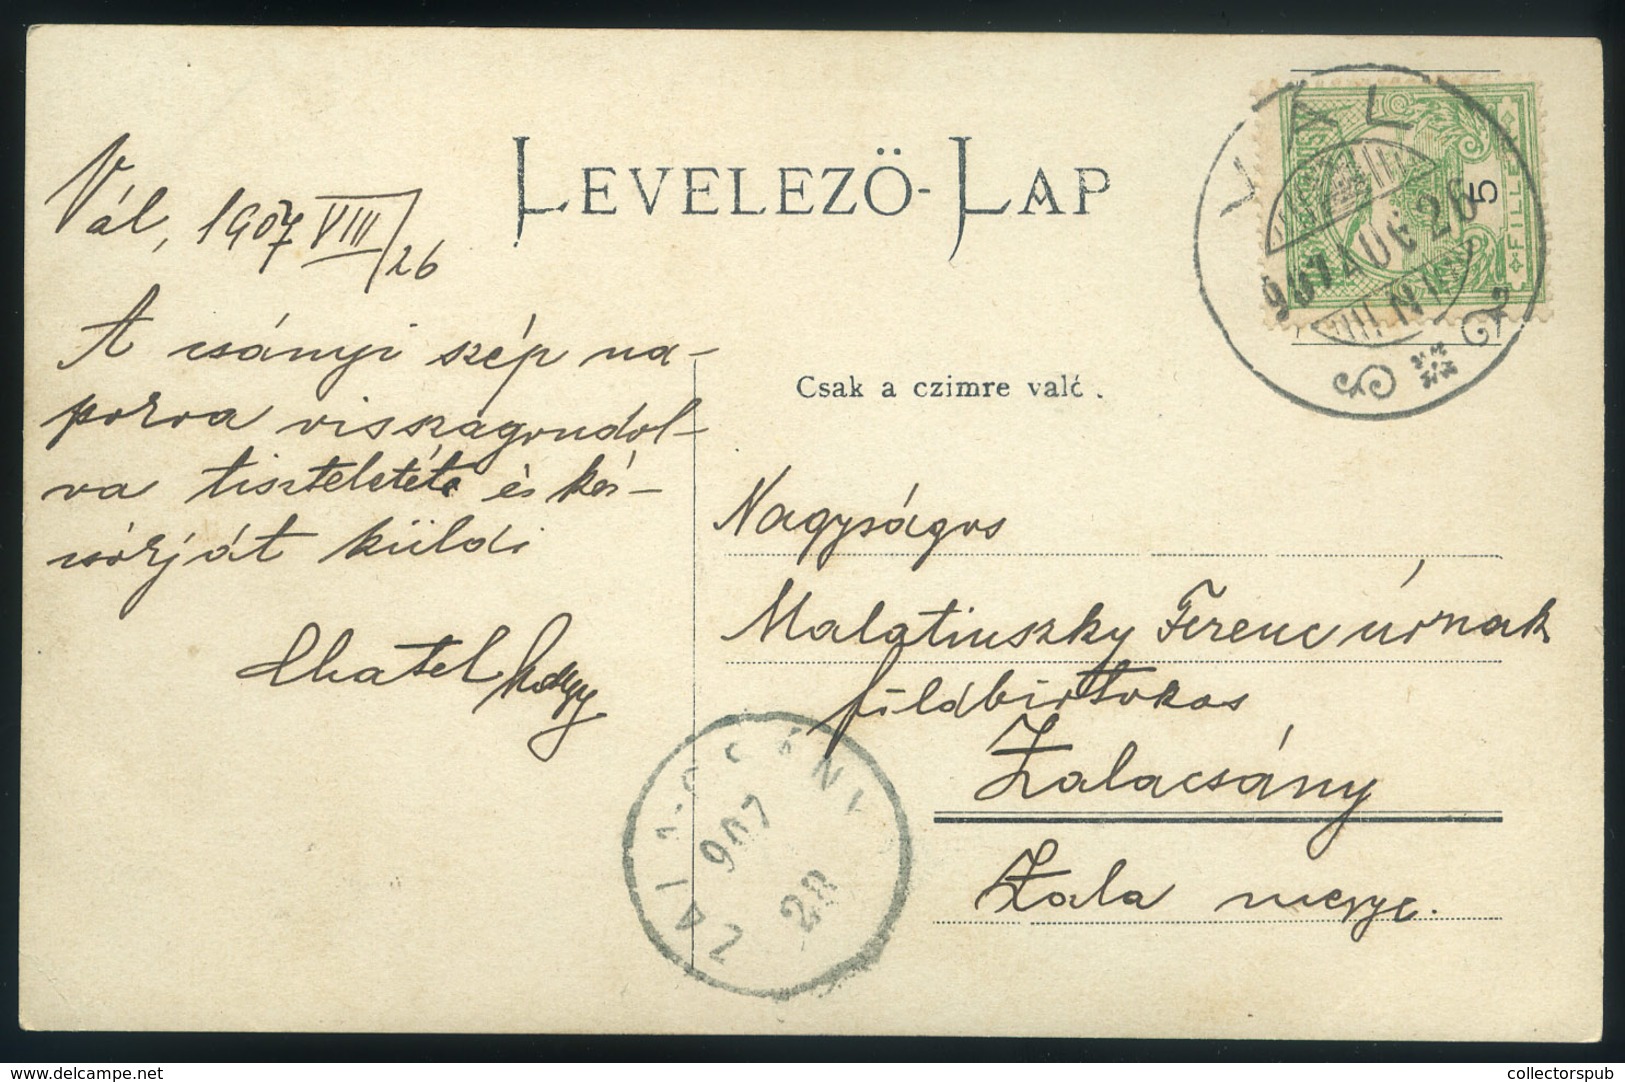 LEVELEZÖ-LAP
Vál, 1907 VIII/26
A csányi szép na-
porva visszagondol-
va tiszteletét és kéz-
csókját küldi
Csak a czimre való.
Nagyságos
Malatinszky Ferenc úrnak
földbirtokos
Zalacsány
Zala megye.
VÁL
907 AUG 26
5
FILLÉR
ZALA-CSÁNY
907
28
www.delcampe.net
collectorspub